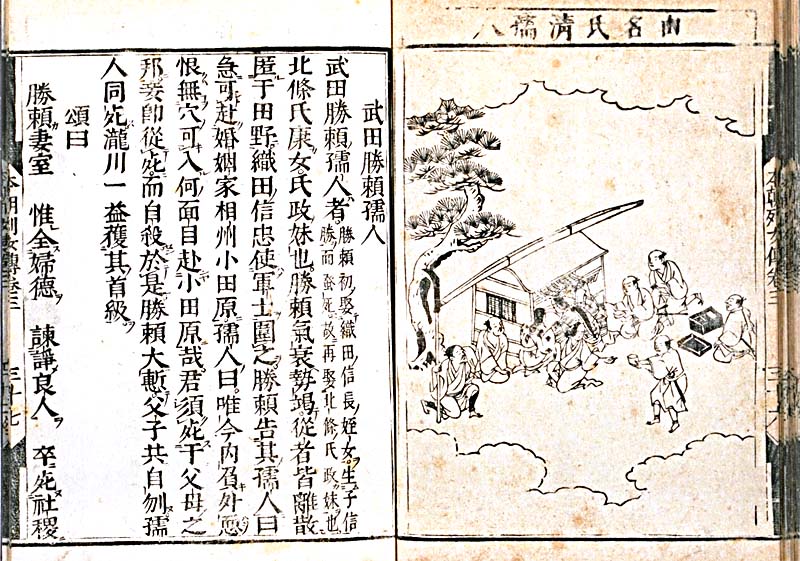 山名氏清孺人
本朝列女傳卷三 三十六
武田勝頼孺人
武田勝頼孺人者勝頼初娶織田信長姪女生子信
勝而發死故再娶北條氏政妹也
北條氏康女氏政妹也勝頼氣衰勢竭從者皆離散
匿于田野織田信忠使軍士圍之勝頼告其孺人曰
急可赴婚姻家相州小田原孺人曰唯今内負外慙
恨無穴可入何面目赴小田原哉君須死于父母之
邦妾即從死而自殺於是勝頼大慙父子共自刎孺
人同死瀧川一益獲其首級
頌曰
勝頼妻室 惟全婦德 諫諍良人 卒死社稷
本朝列女傳卷三 三十七